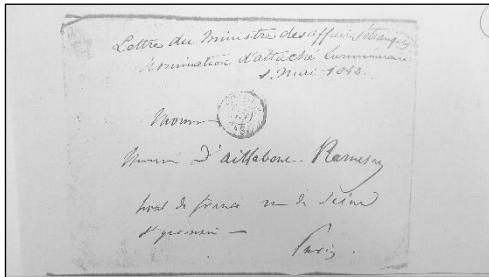 Lettre du Ministre des affaires étrangères
Nomination d'attaché
1. Mai 1843.
Monsieur
Monsieur D'Aillebone Ramesay
hotel de france rue de Seine
St germain
Paris